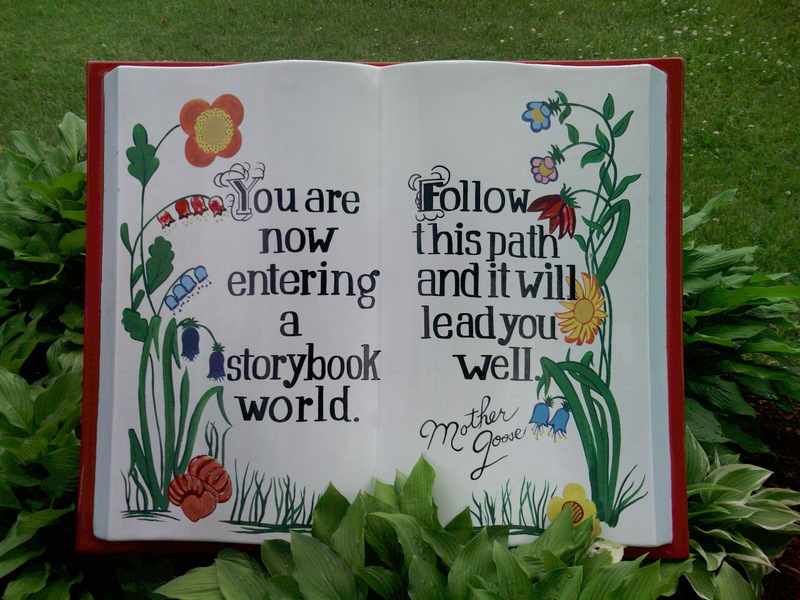 You are
now
entering
a
storybook
world.
Follow
this path
and it will
lead you
well.
Mother
Goose